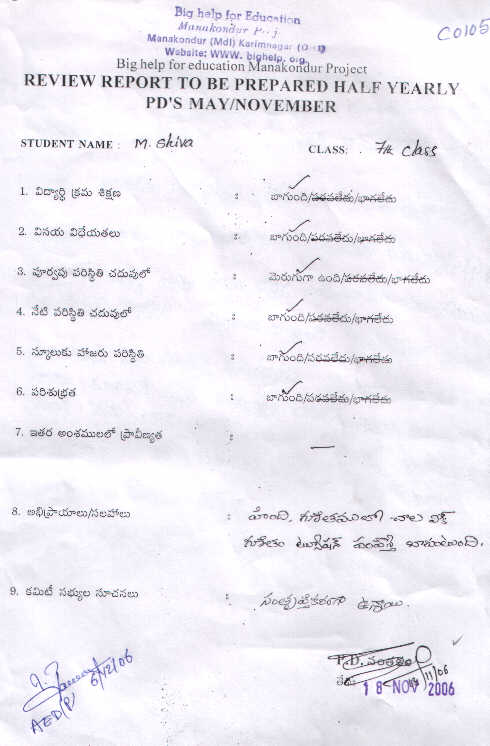 Big help for Education
Manakondur Proj
Manakondur (Mdl) Karimnagar
Website: WWW. bighelp. org.
C0105
Big help for education Manakondur Project
REVIEW REPORT TO BE PREPARED HALF YEARLY
PD'S MAY/NOVEMBER
STUDENT NAME : M. Shiva
CLASS: . 7th class
1. విద్యార్థి క్రమ శిక్షణ : బాగుంది/పరవలేదు/భాగలేదు
2. వినయ విధేయతలు : బాగుంది/పరవలేదు/భాగలేదు
3. పూర్వపు పరిస్థితి చదువులో : మెరుగుగా ఉంది/పరవలేదు/భాగలేదు
4. నేటి పరిస్థితి చదువులో : బాగుంది/పరవలేదు/భాగలేదు
5. స్కూలుకు హాజరు పరిస్థితి : బాగుంది/పరవలేదు/భాగలేదు
6. పరిశుభ్రత : బాగుంది/పరవలేదు/భాగలేదు
7. ఇతర అంశములలో ప్రావీణ్యత : —
8. అభిప్రాయాలు/సలహాలు : హింది, గణితములో చాల వీక్
గణితం ట్యూషన్ పంపిస్తే బాగుంటుంది.
9. కమిటీ సభ్యుల సూచనలు : సంతృప్తికరంగా ఉన్నాయి.
P.D. సంతకం
తేది
18 NOV 2006
6/12/06
AED(P)